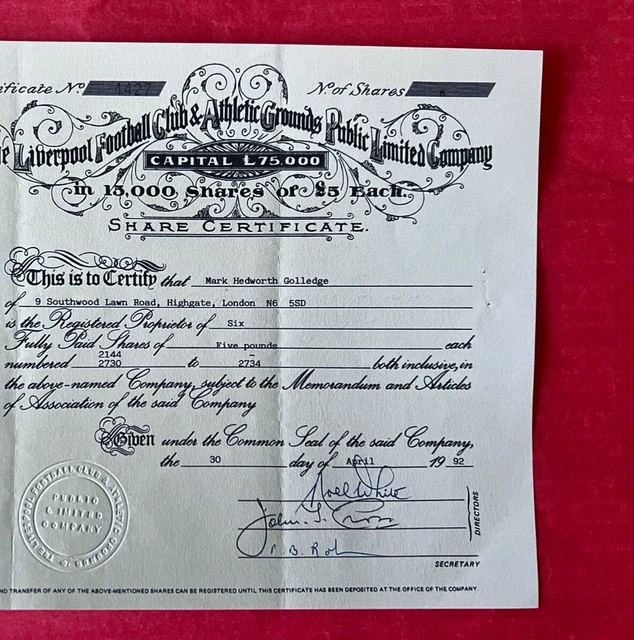 ificate No. 1427 No. of Shares 6
e Liverpool Football Club & Athletic Grounds Public Limited Company
CAPITAL £75.000
in 15,000 Shares of £5 Each.
SHARE CERTIFICATE.
This is to Certify that Mark Hedworth Golledge
of 9 Southwood Lawn Road, Highgate, London N6 5SD
is the Registered Proprietor of Six
Fully Paid Shares of Five pounds each
2144 –
numbered 2730 to 2734 both inclusive, in
the above-named Company, subject to the Memorandum and Articles
of Association of the said Company
Given under the Common Seal of the said Company,
the 30 day of April 19 92
THE LIVERPOOL FOOTBALL CLUB & ATHLETIC GROUNDS
PUBLIC
LIMITED
COMPANY
Noel White
John T. Cross
DIRECTORS
P. B. Rob
SECRETARY
ND TRANSFER OF ANY OF THE ABOVE-MENTIONED SHARES CAN BE REGISTERED UNTIL THIS CERTIFICATE HAS BEEN DEPOSITED AT THE OFFICE OF THE COMPANY.